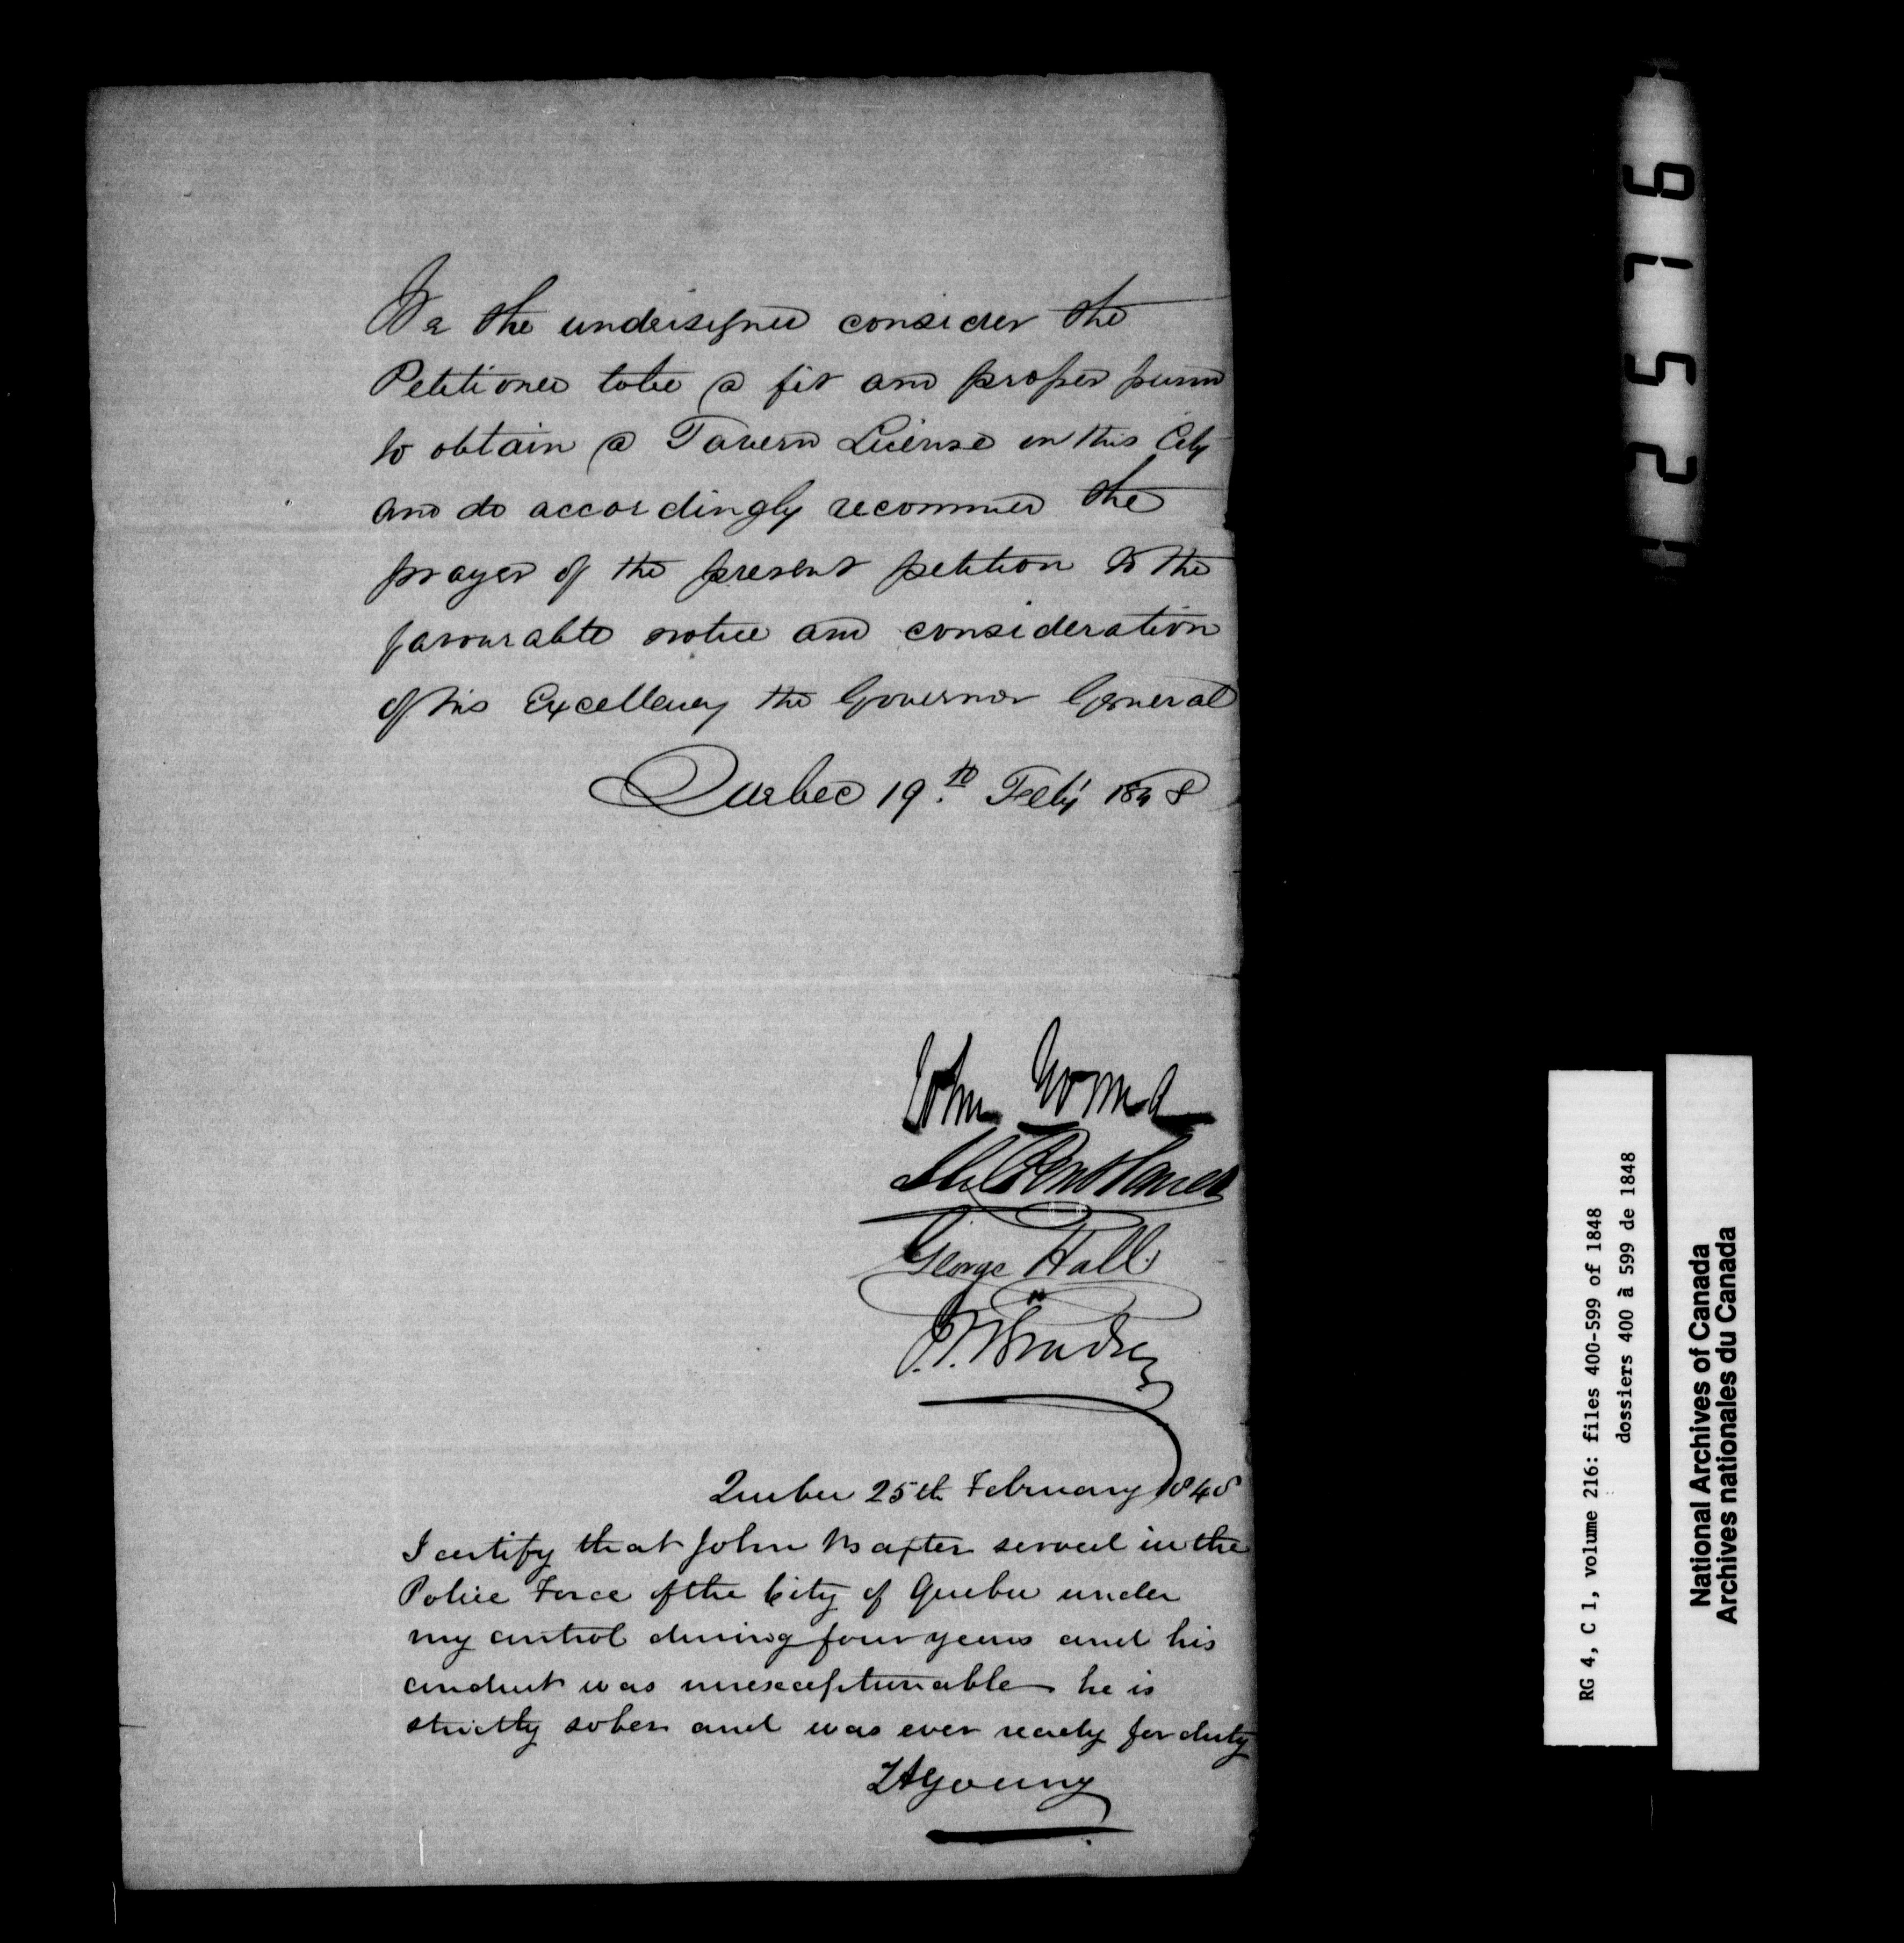 We the undersigned consider the
Petitioner to be a fit and proper person
to obtain a Tavern License in this City
and do accordingly recommend the
prayer of the present petition to the
favourable notice and consideration
of his Excellency the Governor General
Quebec 19th Feby 1848
John
George Hall
Quebec 25th February 1848
I certify that John served in the
Police Force of the City of Quebec under
my control during four years and his
conduct was unexceptionable he is
strictly sober and was ever ready for duty
Young
2576
RG 4, C 1, volume 216: files 400-599 of 1848
dossiers 400 à 599 de 1848
National Archives of Canada
Archives nationales du Canada